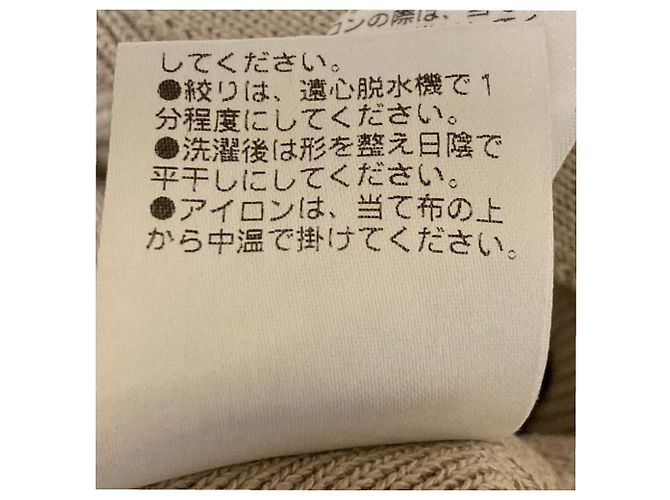 ロンの際は、当て
してください。
●絞りは、遠心脱水機で1
分程度にしてください。
●洗濯後は形を整え日陰で
平干しにしてください。
●アイロンは、当て布の上
から中温で掛けてください。